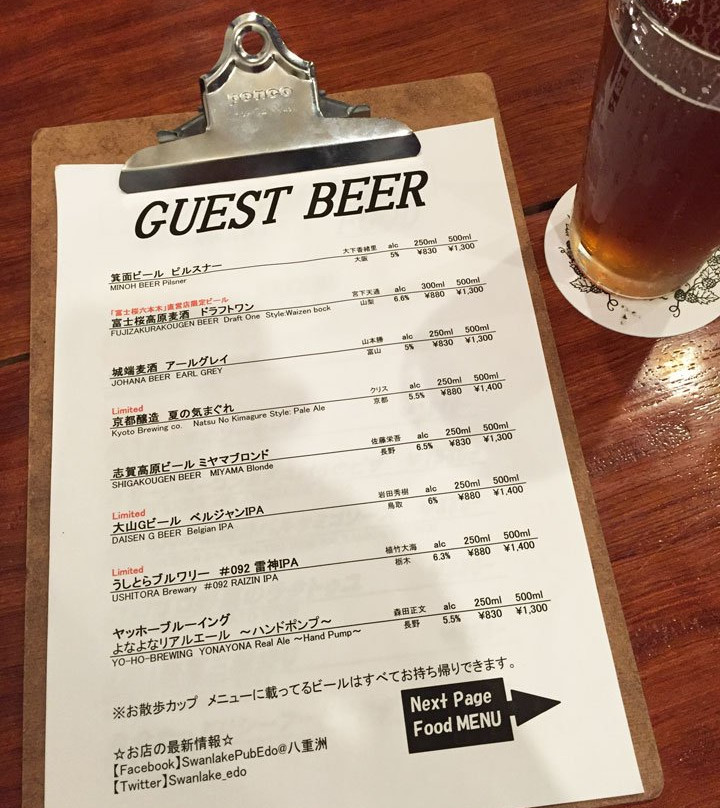 penco
GUEST BEER
箕面ビール ピルスナー 大下香緒里 alc 250ml 500ml
MINOH BEER Pilsner 大阪 5% ¥830 ¥1,300
「富士桜六本木」直営店限定ビール
富士桜高原麦酒 ドラフトワン 宮下天通 alc 300ml 500ml
FUJIZAKURAKOUGEN BEER Draft One Style:Waizen bock 山梨 6.6% ¥880 ¥1,300
城端麦酒 アールグレイ 山本勝 alc 250ml 500ml
JOHANA BEER EARL GREY 富山 5% ¥830 ¥1,300
Limited
京都醸造 夏の気まぐれ クリス alc 250ml 500ml
Kyoto Brewing co. Natsu No Kimagure Style: Pale Ale 京都 5.5% ¥880 ¥1,400
志賀高原ビール ミヤマブロンド 佐藤栄吾 alc 250ml 500ml
SHIGAKOUGEN BEER MIYAMA Blonde 長野 6.5% ¥830 ¥1,300
Limited
大山Gビール ベルジャンIPA 岩田秀樹 alc 250ml 500ml
DAISEN G BEER Belgian IPA 鳥取 6% ¥880 ¥1,400
Limited
うしとらブルワリー #092 雷神IPA 植竹大海 alc 250ml 500ml
USHITORA Brewary #092 RAIZIN IPA 栃木 6.3% ¥880 ¥1,400
ヤッホーブルーイング
よなよなリアルエール ～ハンドポンプ～ 森田正文 alc 250ml 500ml
YO-HO-BREWING YONAYONA Real Ale ～Hand Pump～ 長野 5.5% ¥830 ¥1,300
※お散歩カップ メニューに載ってるビールはすべてお持ち帰りできます。
Next Page
Food MENU
☆お店の最新情報☆
【Facebook】SwanlakePubEdo@八重洲
【Twitter】Swanlake_edo